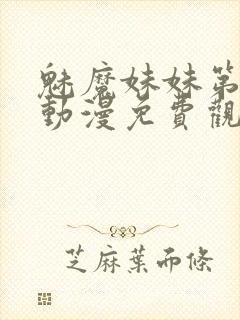 魅魔妹妹第
動漫免費觀
芝麻葉而條